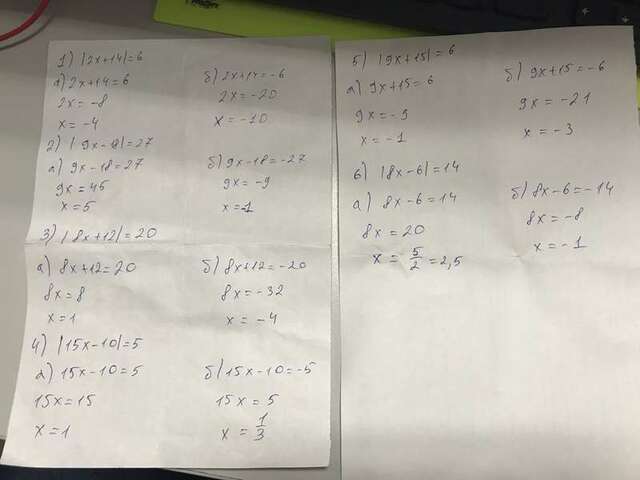 1) |2x+14|=6
а) 2x+14=6
2x=-8
x=-4
б) 2x+14=-6
2x=-20
x=-10
2) |9x-18|=27
а) 9x-18=27
9x=45
x=5
б) 9x-18=-27
9x=-9
x=-1
3) |8x+12|=20
а) 8x+12=20
8x=8
x=1
б) 8x+12=-20
8x=-32
x=-4
4) |15x-10|=5
а) 15x-10=5
15x=15
x=1
б) 15x-10=-5
15x=5
x=1/3
5) |9x+15|=6
а) 9x+15=6
9x=-9
x=-1
б) 9x+15=-6
9x=-21
x=-3
6) |8x-6|=14
а) 8x-6=14
8x=20
x=5/2=2,5
б) 8x-6=-14
8x=-8
x=-1